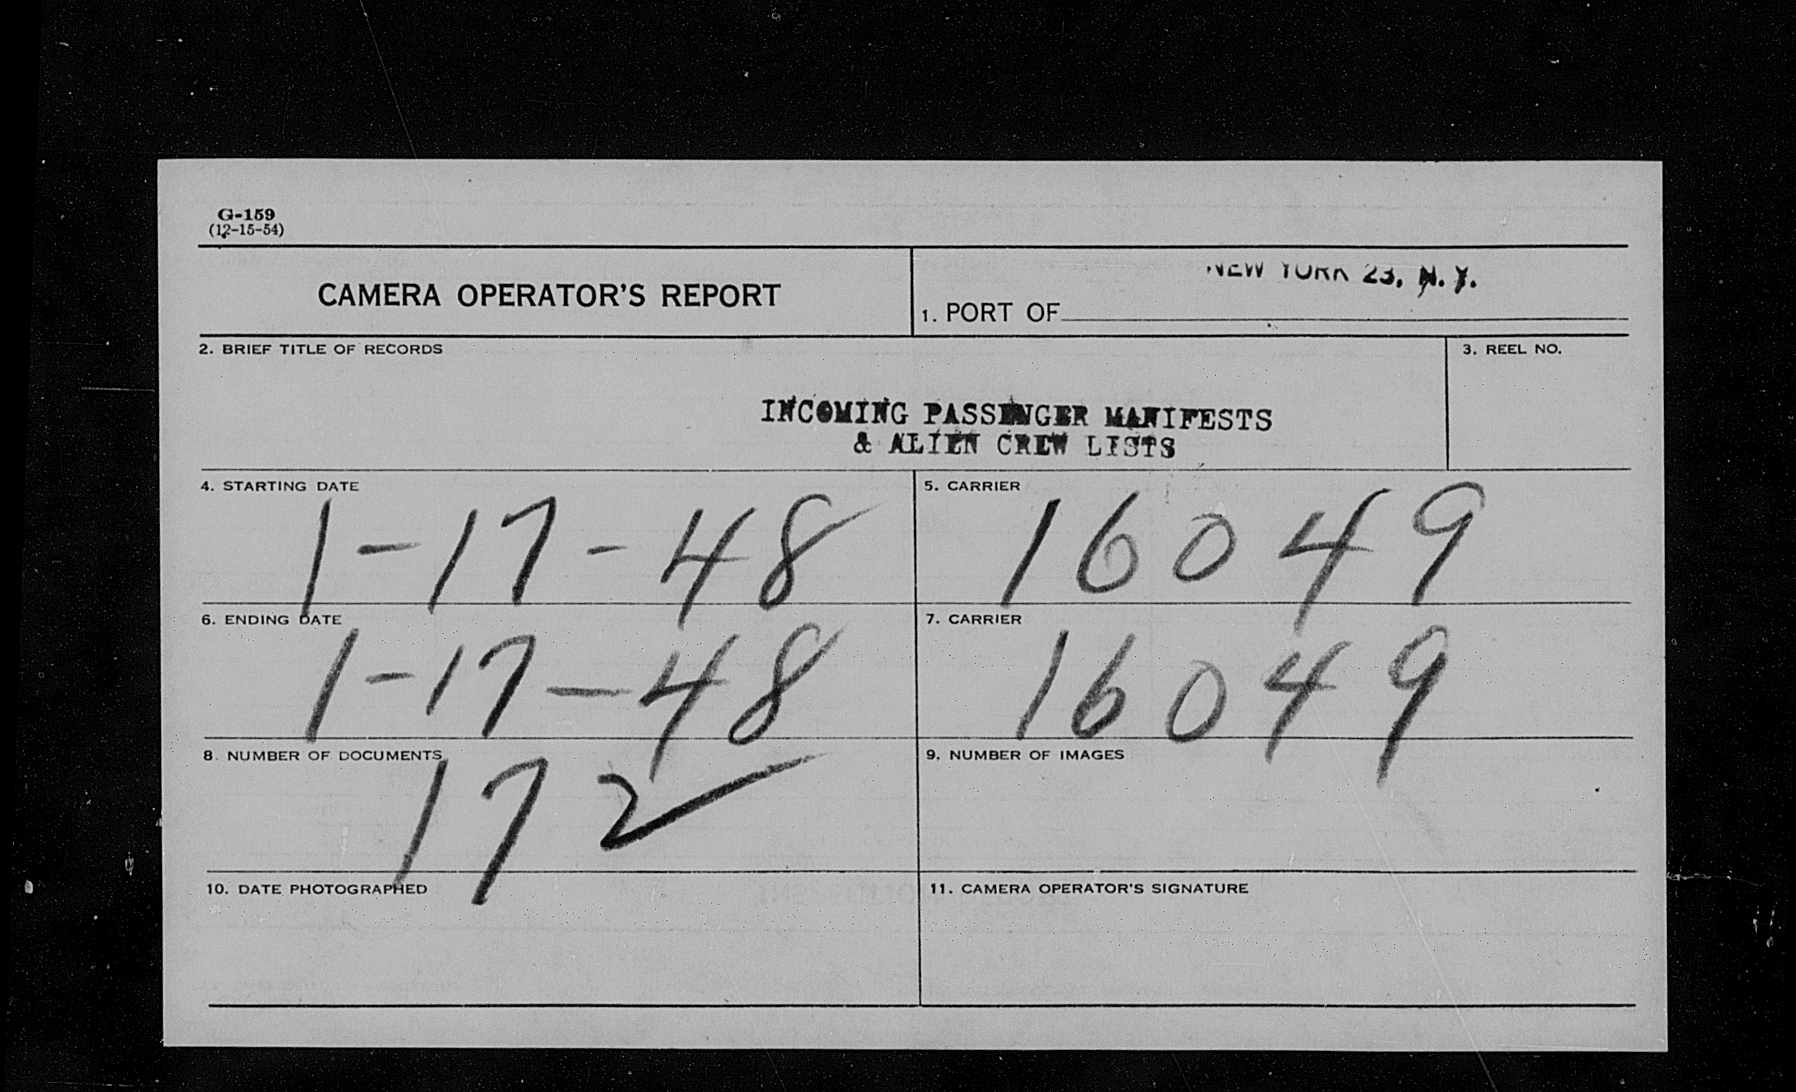 G-159
(12-15-54)
CAMERA OPERATOR'S REPORT
NEW YORK 23, N. Y.
1. PORT OF
2. BRIEF TITLE OF RECORDS
3. REEL NO.
INCOMING PASSENGER MANIFESTS
& ALIEN CREW LISTS
4. STARTING DATE
1-17-48
5. CARRIER
16049
6. ENDING DATE
1-17-48
7. CARRIER
16049
8. NUMBER OF DOCUMENTS
172
9. NUMBER OF IMAGES
10. DATE PHOTOGRAPHED
11. CAMERA OPERATOR'S SIGNATURE